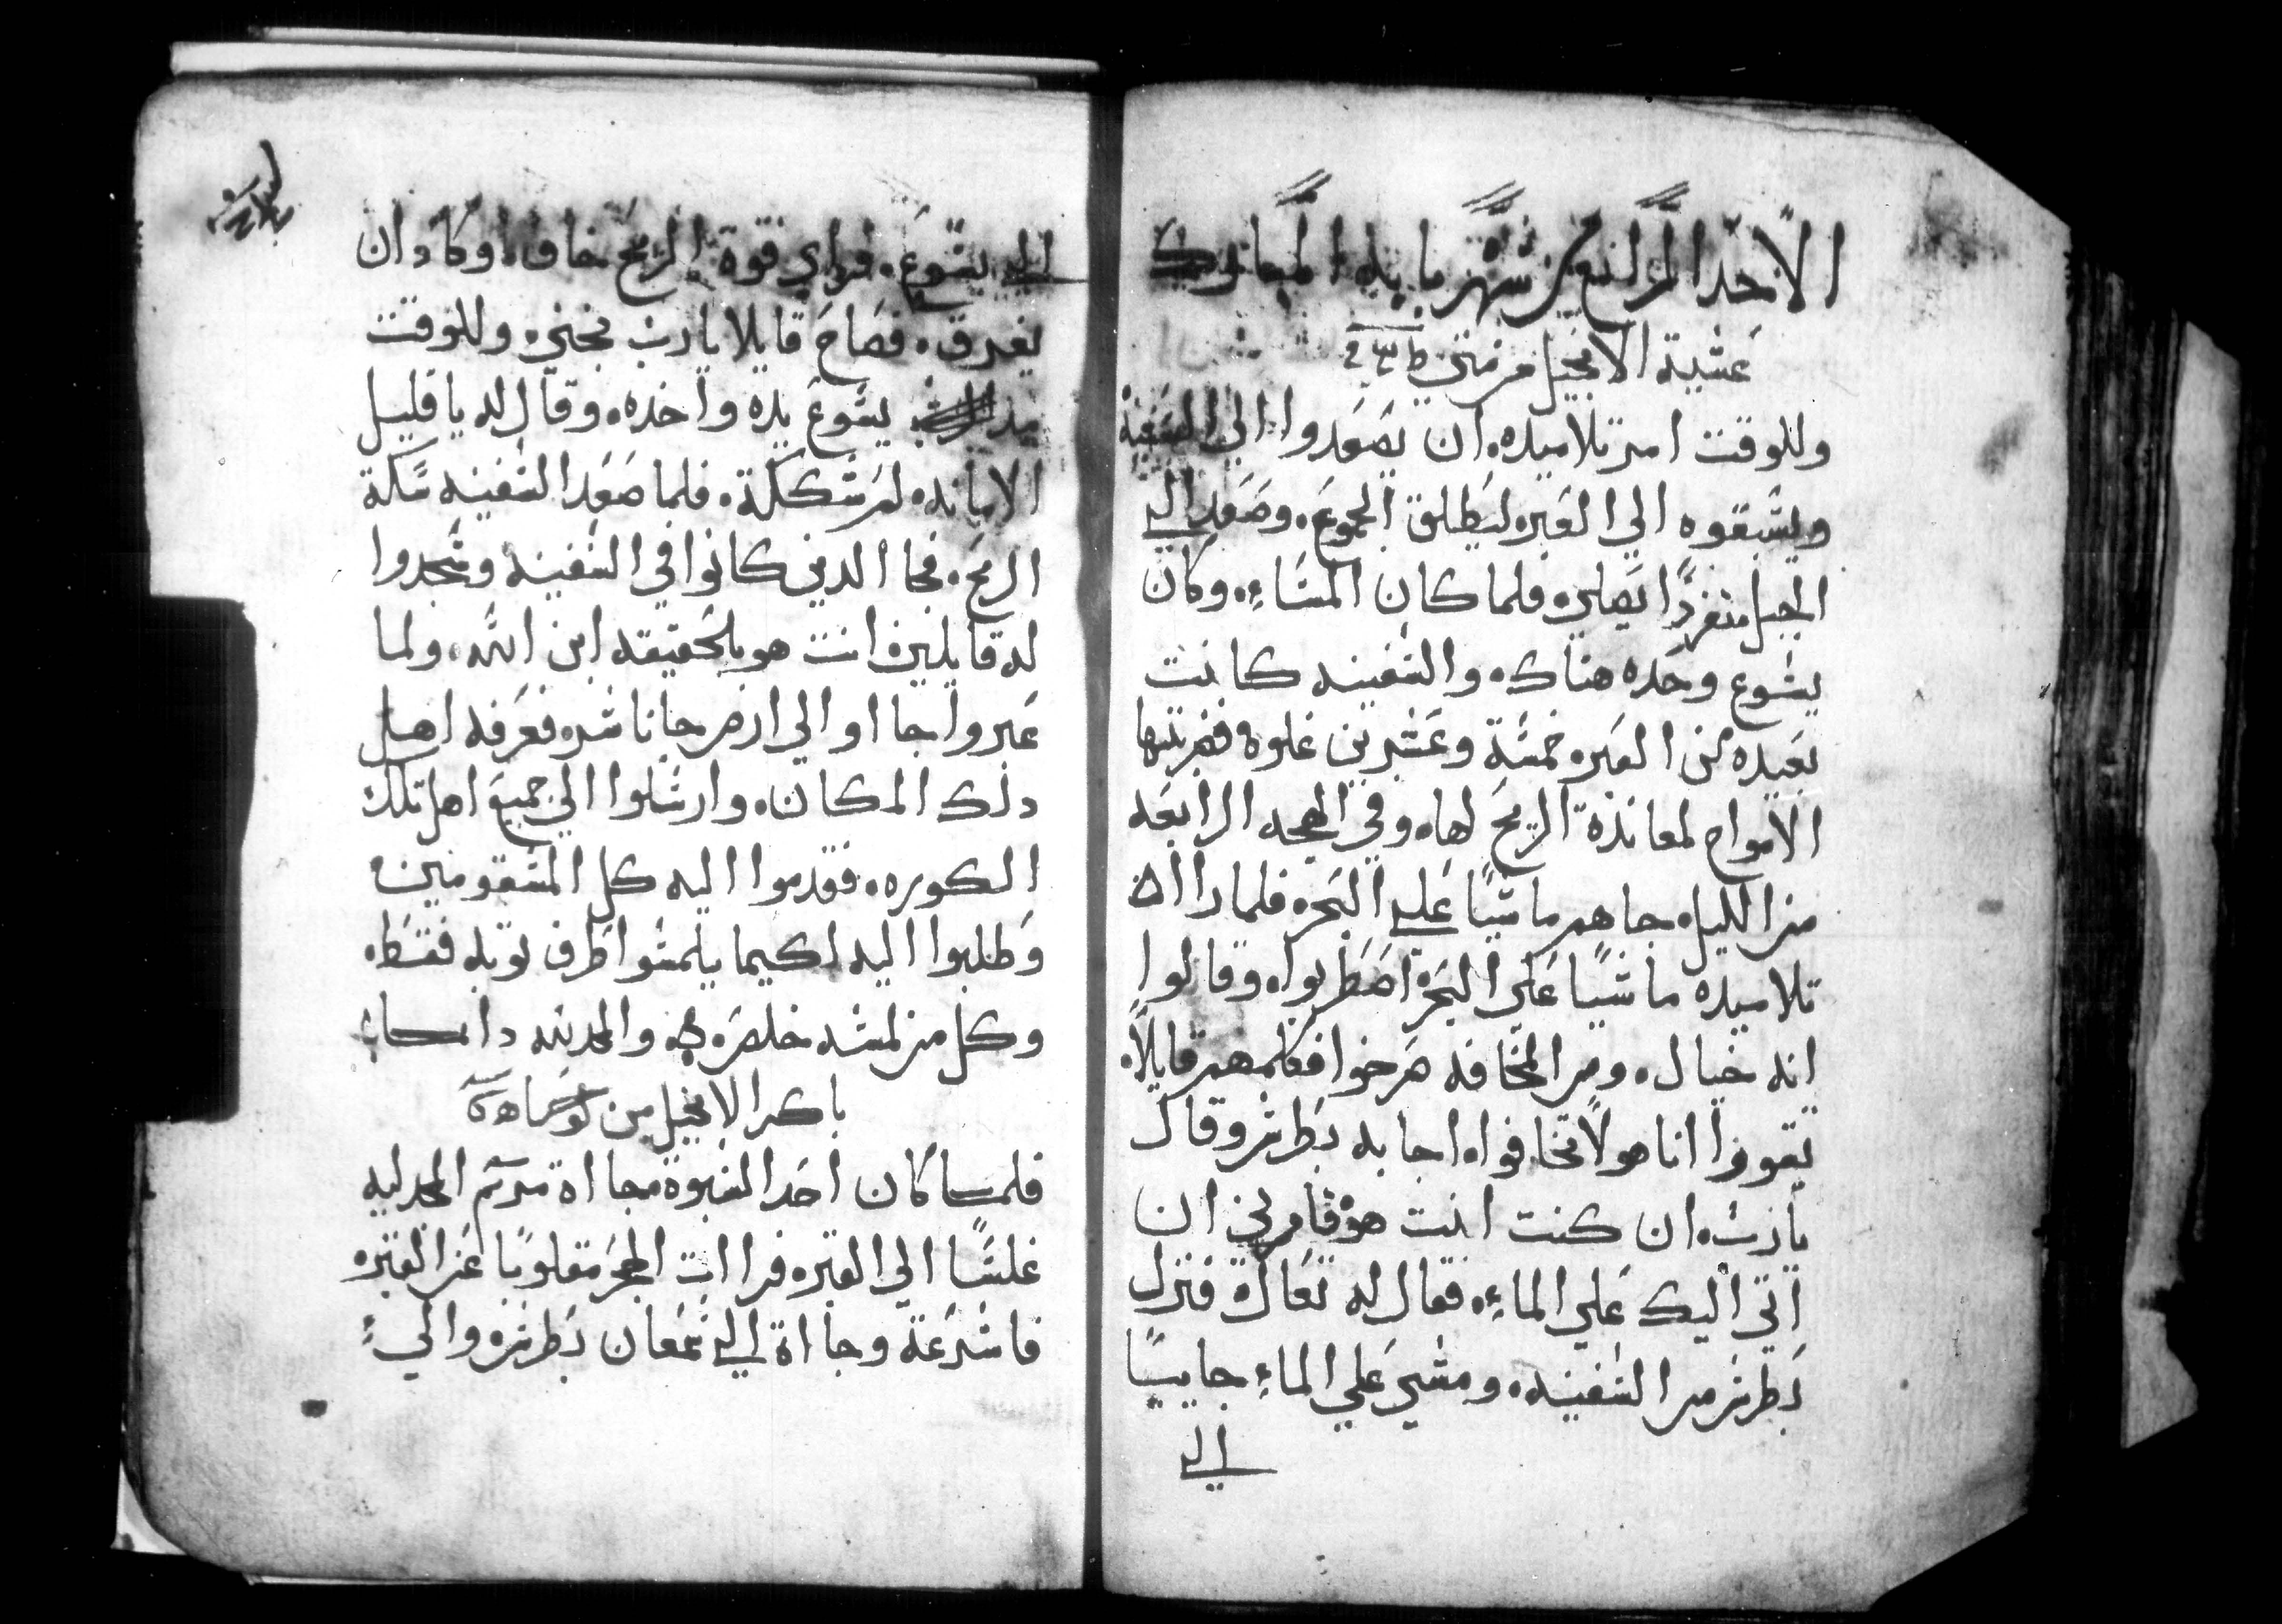 الاحد الرابع من شهر بابه المبارك
عشية الانجيل من متي
وللوقت امر تلاميده ان يصعدوا الي السفينة
ويسبقوه الي العبر ليطلق الجموع وصعد الي
الجبل منفردًا يصلي فلما كان المساء وكان
يسوع وحده هناك والسفينه كانت
بعيده عن العبر خمسة وعشرين غلوه فضربتها
الامواج لمعاندة الريح لها وفي الهجعه الرابعه
من الليل جاهم ماشيًا علي البحر فلما راان
تلاميده ماشيًا علي البحر اضطربوا وقالوا
انه خيال ومن المخافه صرخوا فكلمهم قايلاً
تقووا انا هو لا تخافوا اجابه بطرس وقال
يارب ان كنت انت هو فامرني ان
اتي اليك علي الماء فقال له تعال فنزل
بطرس من السفينه ومشي علي الماء جاييًا
الي
الي يسوع فراي قوة الريح خاف وكاد ان
يغرق فصاح قايلا يارب نجني وللوقت
مد يسوع يده واخده وقال له يا قليل
الامانه لم شككة فلما صعد السفينه سكة
الريح فجا الدين كانوا في السفينه وسجدوا
له قايلين انت هو بلحقيقه ابن الله ولما
عبروا جااو الي ارض جاناشر فعرفه اهل
دلك المكان وارسلوا الي جميع اهل تلك
الكوره فقدموا اليه كل المسقومين
وطلبوا اليه لكيما يلمسوا طرف توبه فقط
وكل من لمسه خلص والمجد لله دايما
باكر الانجيل من يوحنا
فلما كان احد السبوة جااة مريم المجدليه
غلسًا الي القبر فراات الحجر مقلوبًا عن القبر
فاسرعة وجااة الي سمعان بطرس والي